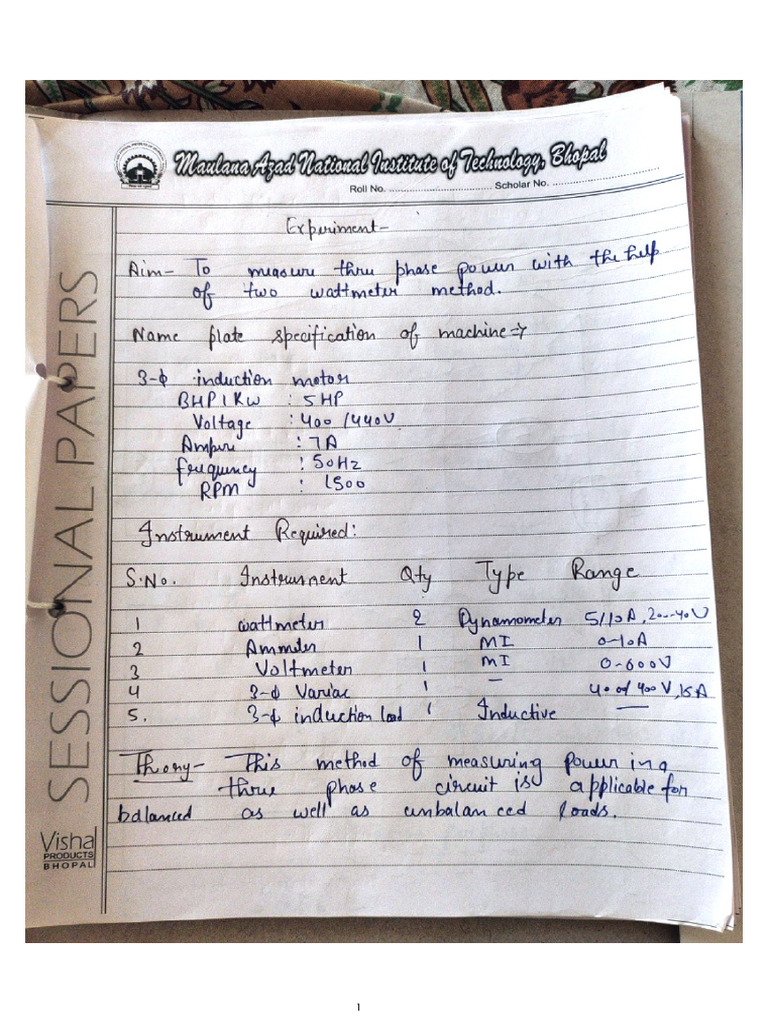 Maulana Azad National Institute of Technology, Bhopal
Roll No. .............................. Scholar No. ..............................
Experiment-
Aim- To measure three phase power with the help
of two wattmeter method.
Name plate specification of machine⇒
3-ϕ induction motor
BHP/KW : 5HP
Voltage : 400/440V
Ampere : 7A
frequency : 50Hz
RPM : 1500
Instrument Required:
S.No. Instrument Qty Type Range
1 wattmeter 2 Dynamometer 5/10A,
2 Ammeter 1 MI 0-10A
3 Voltmeter 1 MI 0-600V
4 3-ϕ Variac 1 — 400V, 15A
5. 3-ϕ induction load 1 Inductive —
Theory- This method of measuring power in a
three phase circuit is applicable for
balanced as well as unbalanced loads.
SESSIONAL PAPERS
Visha
PRODUCTS
BHOPAL
1